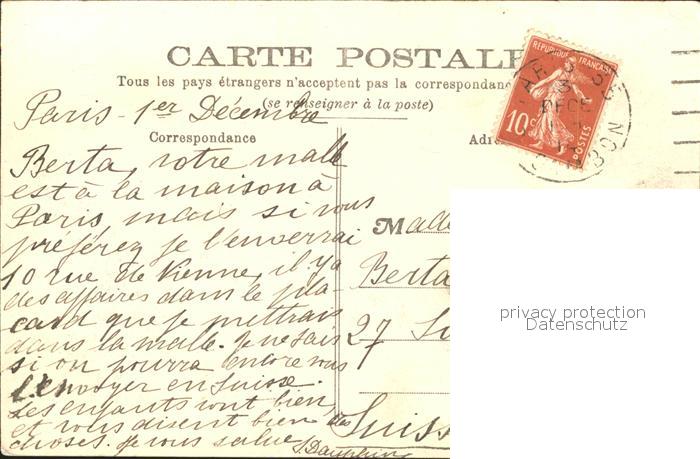 CARTE POSTALE
Tous les pays étrangers n'acceptent pas la correspondance
(se renseigner à la poste)
Correspondance
REPUBLIQUE FRANÇAISE
10c
POSTES
DECE
Paris - 1er Décembre
Berta, votre malle
est à la maison à
Paris mais si vous
préférez je l'enverrai
10 rue de Vienne, il y a
des affaires dans le pla-
card que je mettrais
dans la malle. Je ne sais
si on pourra encore vous
l'envoyer en Suisse.
Les enfants vont bien,
et vous disent bien des
choses. Je vous salue
Berta
27
Suiss
privacy protection
Datenschutz